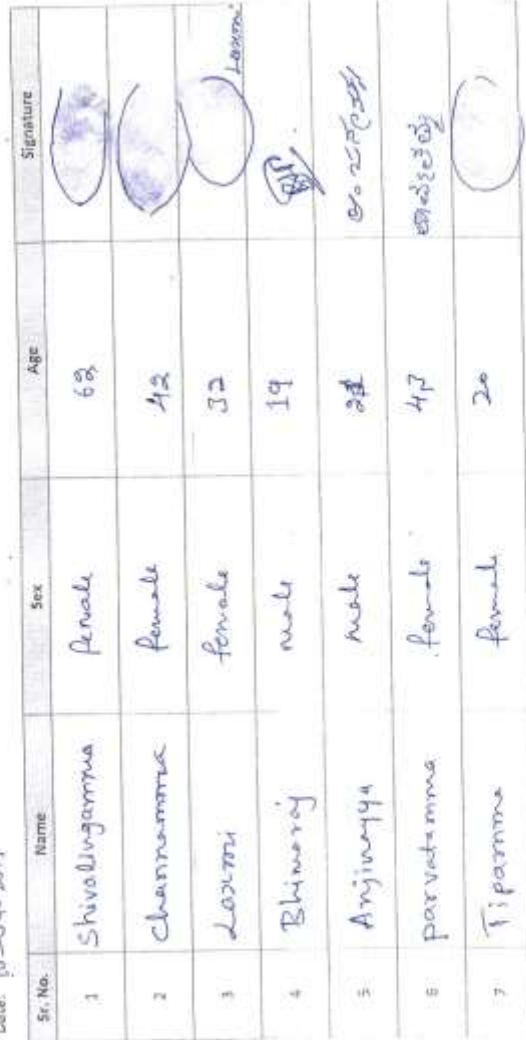 Date:
Sr. No. Name Sex Age Signature
1 Shivalingamma female 62
2 Channamma female 42
3 Laxmi female 32 Laxmi
4 Bhimaraj male 19
5 Anjinayya male
6 parvatamma female 43 ಪಾರ್ವತಮ್ಮ
7 Tipamma female 20